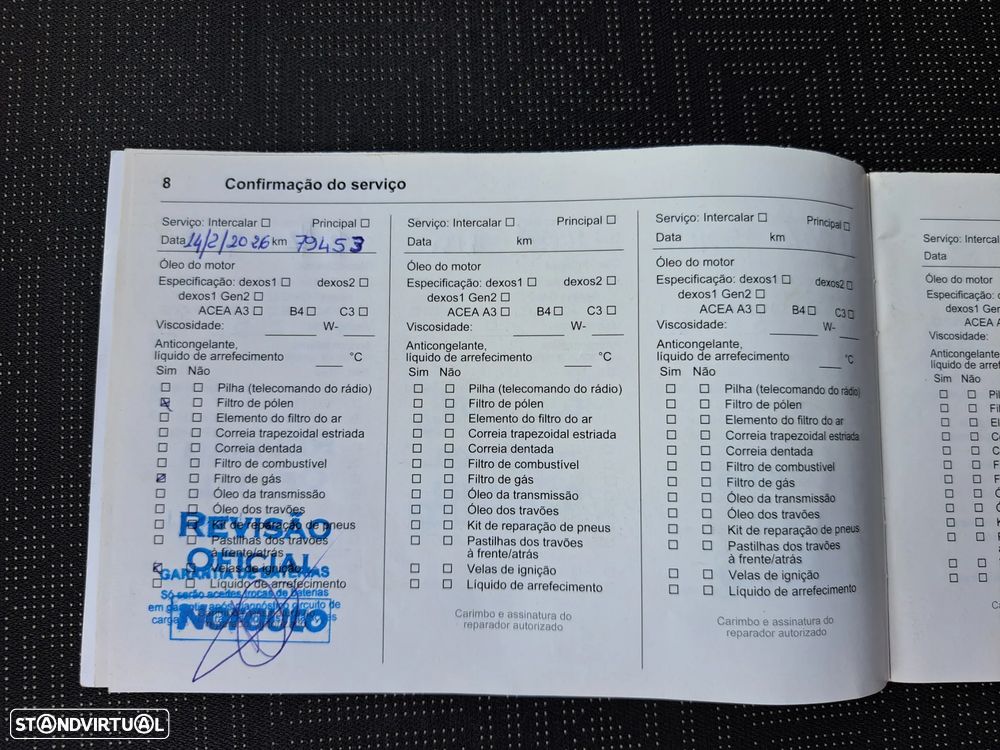 8 Confirmação do serviço
Serviço: Intercalar ☐ Principal ☐
Data 14/2/2026 km 79453
Óleo do motor
Especificação: dexos1 ☐ dexos2 ☐
dexos1 Gen2 ☐
ACEA A3 ☐ B4 ☐ C3 ☐
Viscosidade: W-
Anticongelante,
líquido de arrefecimento °C
Sim Não
☐ ☐ Pilha (telecomando do rádio)
☒ ☐ Filtro de pólen
☐ ☐ Elemento do filtro do ar
☐ ☐ Correia trapezoidal estriada
☐ ☐ Correia dentada
☐ ☐ Filtro de combustível
☒ ☐ Filtro de gás
☐ ☐ Óleo da transmissão
☐ ☐ Óleo dos travões
☐ ☐ Kit de reparação de pneus
☐ ☐ Pastilhas dos travões
à frente/atrás
☒ ☐ Velas de ignição
☐ ☐ Líquido de arrefecimento
REVISÃO
OFICIAL
GARANTIA DE BATERIAS
Só serão aceites trocas de baterias
em garantia após diagnóstico circuito de
Norauto
Serviço: Intercalar ☐ Principal ☐
Data km
Óleo do motor
Especificação: dexos1 ☐ dexos2 ☐
dexos1 Gen2 ☐
ACEA A3 ☐ B4 ☐ C3 ☐
Viscosidade: W-
Anticongelante,
líquido de arrefecimento °C
Sim Não
☐ ☐ Pilha (telecomando do rádio)
☐ ☐ Filtro de pólen
☐ ☐ Elemento do filtro do ar
☐ ☐ Correia trapezoidal estriada
☐ ☐ Correia dentada
☐ ☐ Filtro de combustível
☐ ☐ Filtro de gás
☐ ☐ Óleo da transmissão
☐ ☐ Óleo dos travões
☐ ☐ Kit de reparação de pneus
☐ ☐ Pastilhas dos travões
à frente/atrás
☐ ☐ Velas de ignição
☐ ☐ Líquido de arrefecimento
Carimbo e assinatura do
reparador autorizado
Serviço: Intercalar ☐ Principal ☐
Data km
Óleo do motor
Especificação: dexos1 ☐ dexos2 ☐
dexos1 Gen2 ☐
ACEA A3 ☐ B4 ☐ C3 ☐
Viscosidade: W-
Anticongelante,
líquido de arrefecimento °C
Sim Não
☐ ☐ Pilha (telecomando do rádio)
☐ ☐ Filtro de pólen
☐ ☐ Elemento do filtro do ar
☐ ☐ Correia trapezoidal estriada
☐ ☐ Correia dentada
☐ ☐ Filtro de combustível
☐ ☐ Filtro de gás
☐ ☐ Óleo da transmissão
☐ ☐ Óleo dos travões
☐ ☐ Kit de reparação de pneus
☐ ☐ Pastilhas dos travões
à frente/atrás
☐ ☐ Velas de ignição
☐ ☐ Líquido de arrefecimento
Carimbo e assinatura do
reparador autorizado
Serviço: Interca
Data
Óleo do motor
Especificação:
dexos1 Ge
ACEA
Viscosidade:
Anticongelante
líquido de arref
Sim Não
STANDVIRTUAL